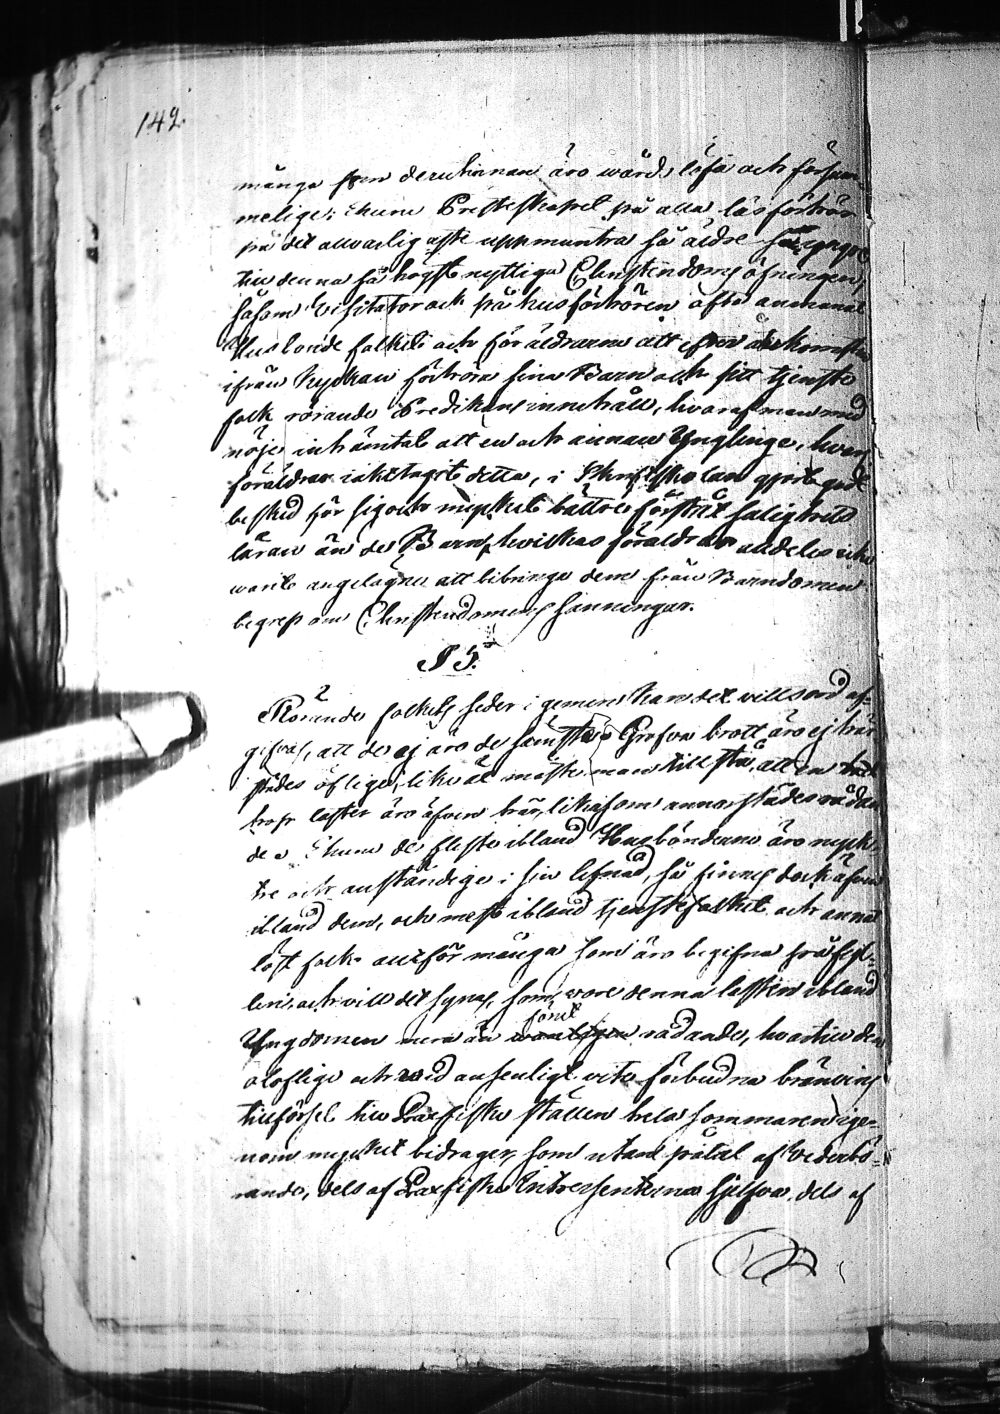 142.
många som derutinnan äro wårdslösa och försum-
melige; skulle Presteskapet på alla läsförhör
på det allvarligaste uppmuntra så äldre så yngre
till denna så högst nyttiga Christendoms öfningen,
såsom Visitator ock på husförhören ofta anmanat
Husbondefolket och föräldrarna att efter återkomsten
ifrån Kyrkan förhöra sina Barn och sitt tjenste
folk rörande Predikans innehåll, hvaraf man med
nöje inhämtat att en och annan Yngling, hvars
föräldrar iakttagit detta, i Skriftskolan gjort godt
besked för sig och mycket bättre förstått salighets
läran än de Barn, hvilkas föräldrar aldeles icke
warit angelägne att bibringa dem från Barndomen
begrep om Christendomens sanningar.
§ 5.
Rörande folkets seder i gemen kan det vittsord af-
gifvas, att de ej äro de sämsta. Grofva brott äro ej här
städes öflige, likväl måste man tillstå, att en
laster äro äfven här, likasom annorstädes rådan
de. Ehuru de fleste ibland Husbönderne äro nyck-
tre och anständige i sin lefnad, så finnes dock äfven
ibland dem, och mest ibland tjenstefolket och annat
löst folk allt för många som äro begifna på fyl-
leri, och vill det synas, som vore denna lasten ibland
Ungdomen mera än förut rådande, hvartill den
oloflige och wid ansenligt vite förbudna bränvins
tillförsel till Laxfiske ställen hela sommaren ige-
nom mycket bidrager, som utan påtal af Vederbö-
rande, dels af Laxfiske Intressenterna sjelfva, dels af